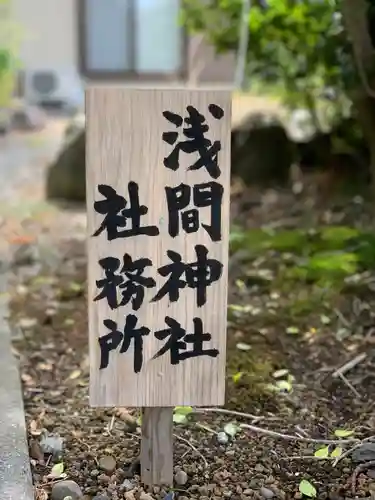 浅間神社
社務所